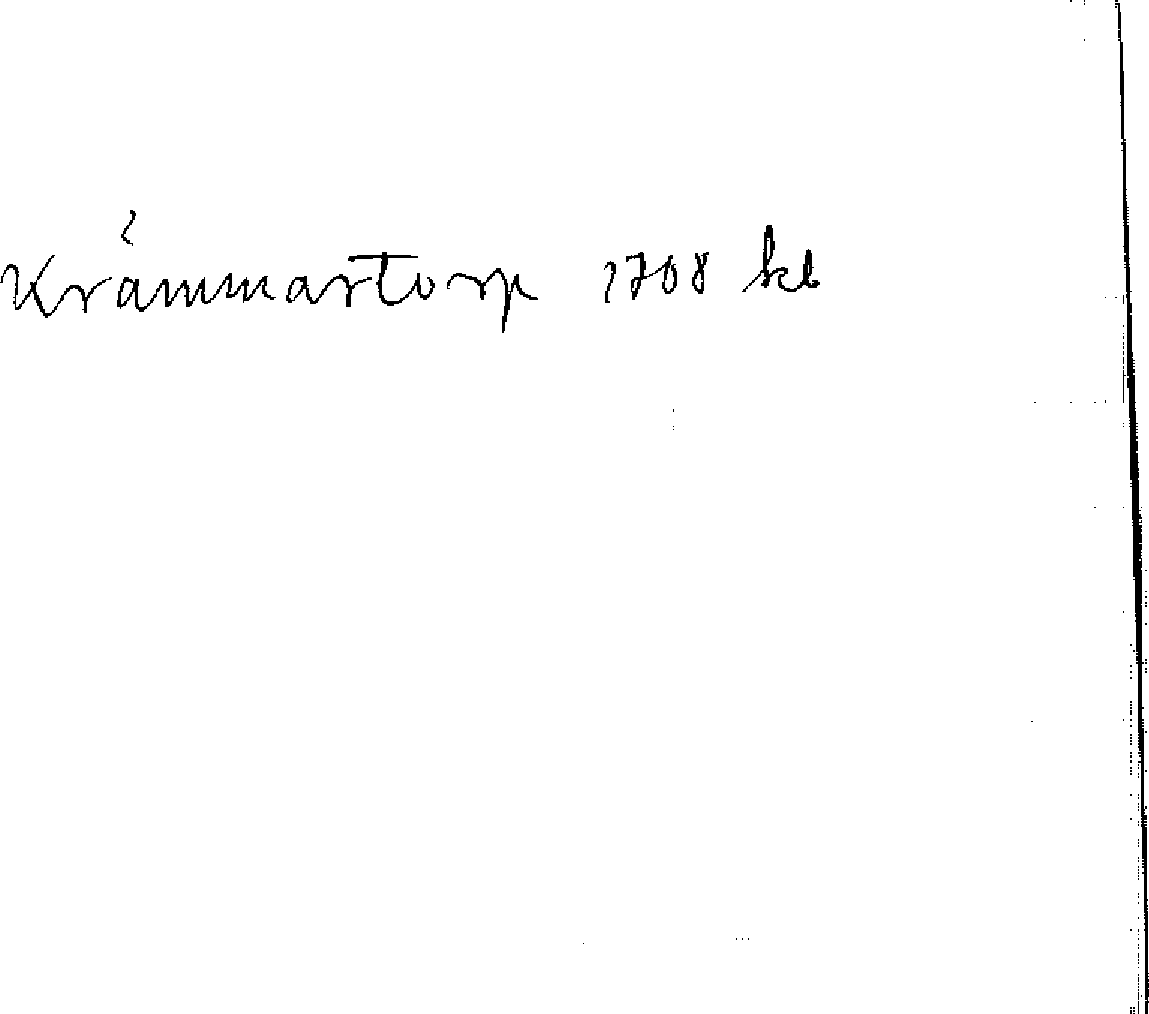 Krämmartorp 1708 kb